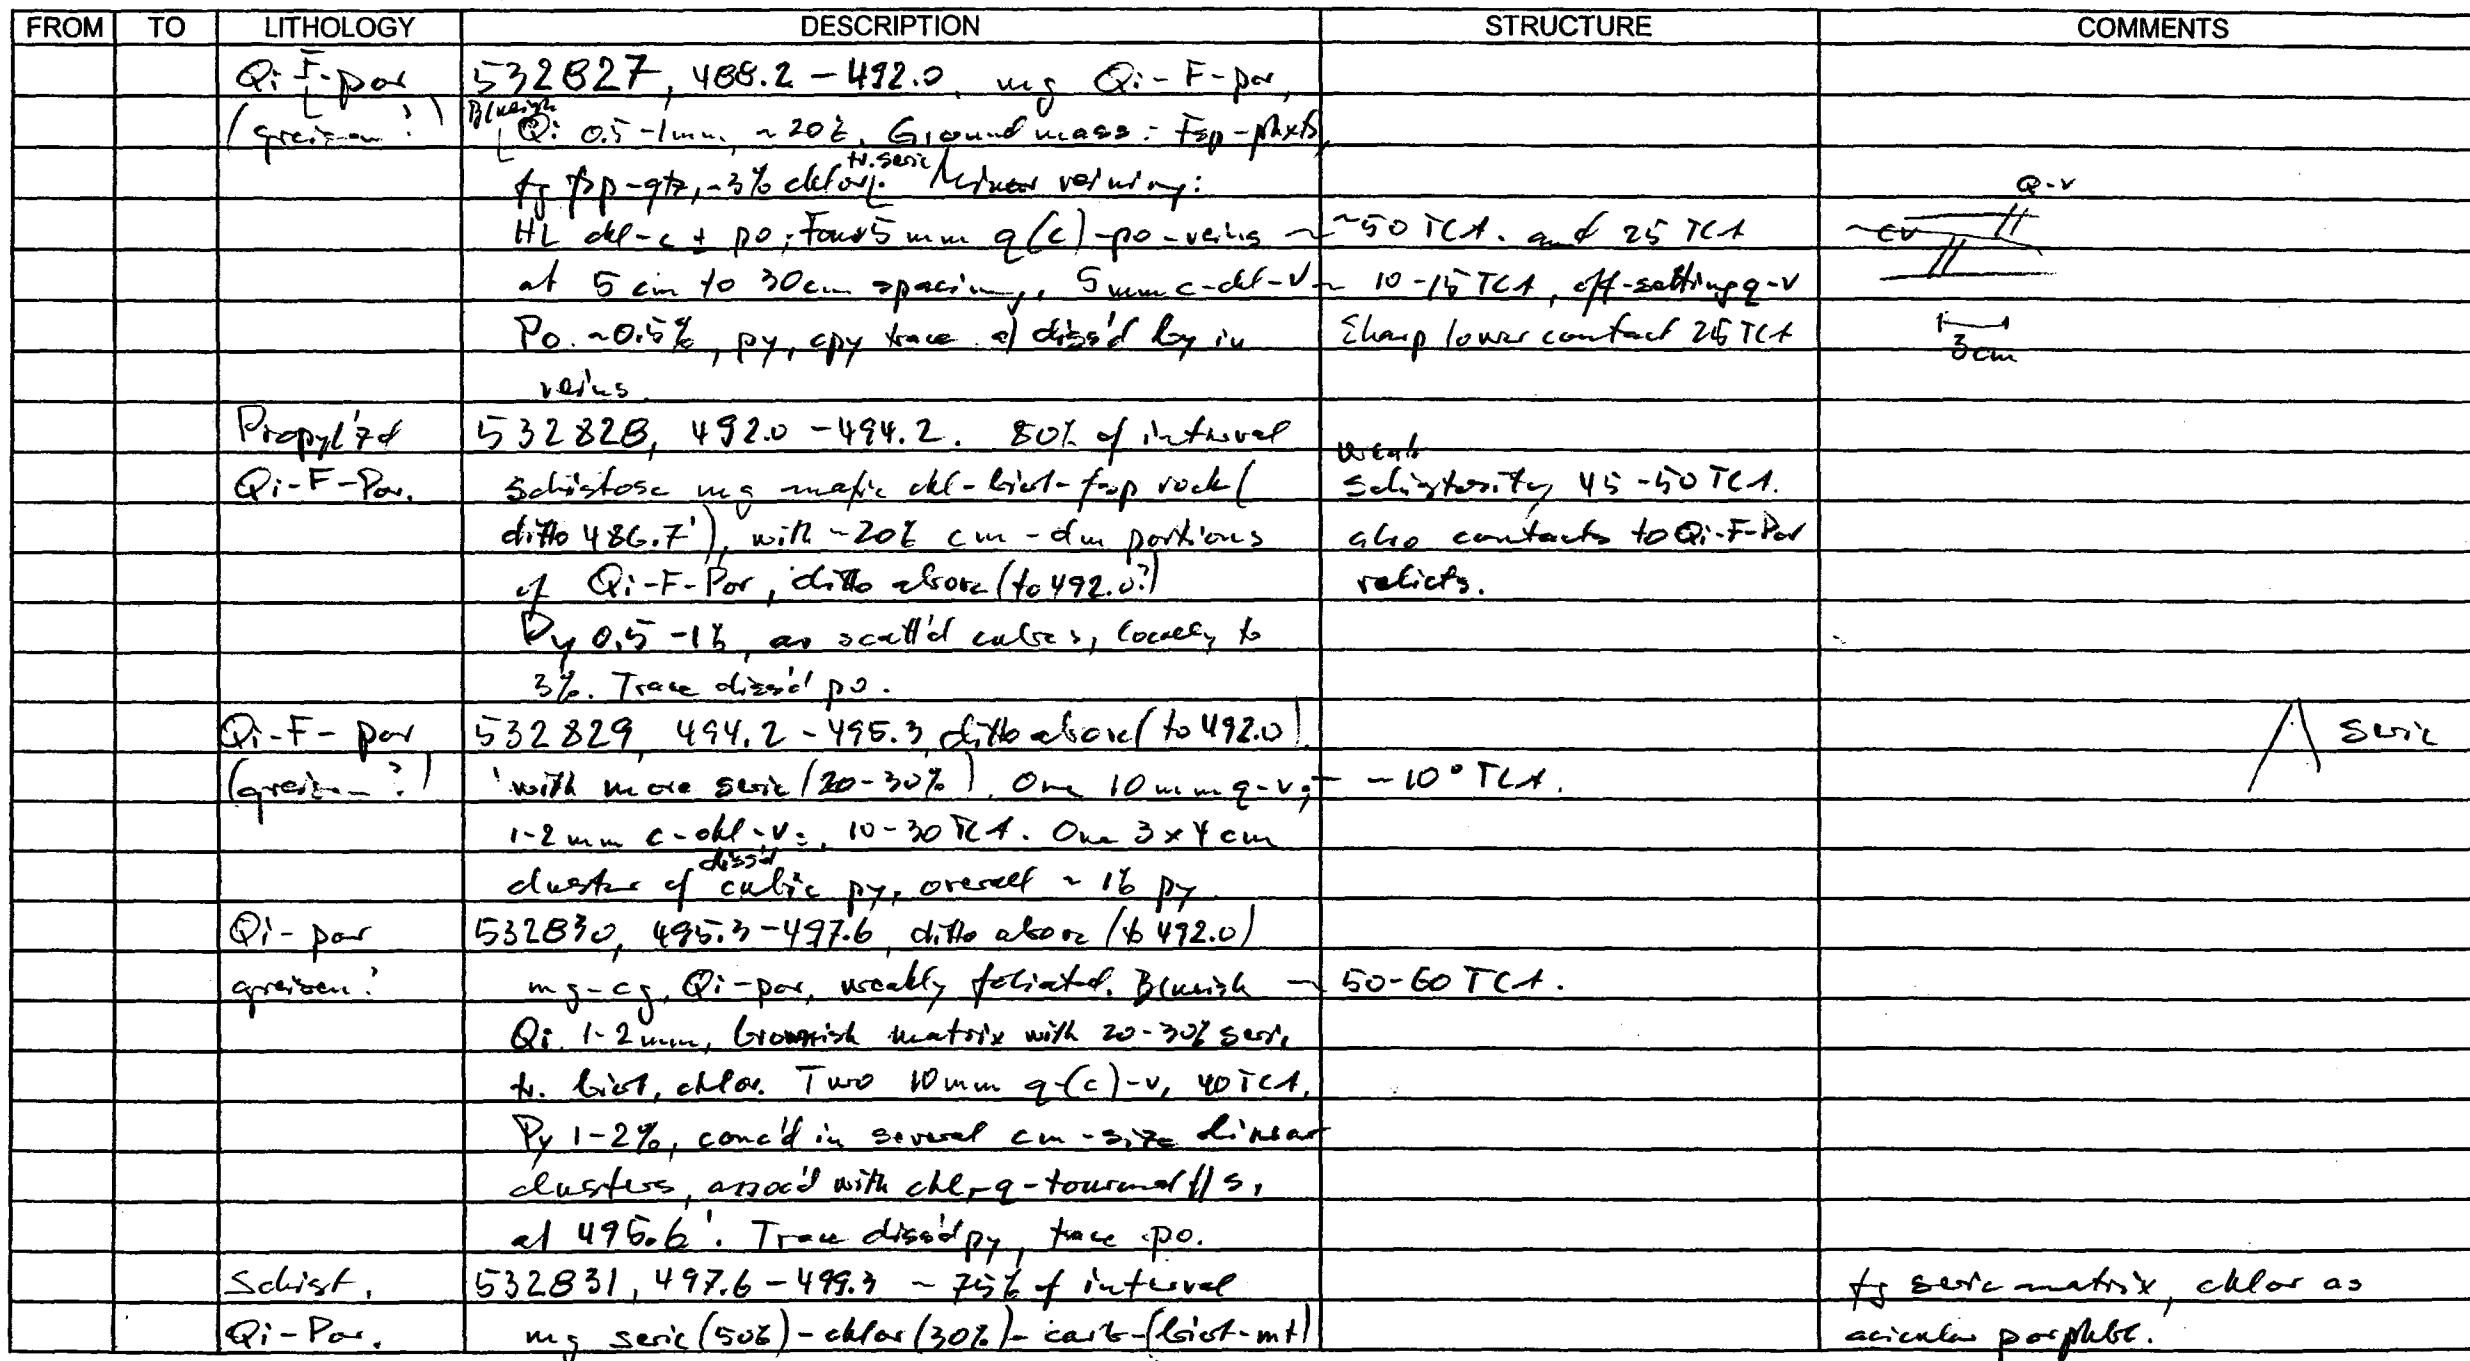 FROM TO LITHOLOGY DESCRIPTION STRUCTURE COMMENTS
Qi F-por 532827, 488.2-492.0, mg Qi-F-por,
(greisen?) Bluish Qi 0.5-1mm, ~20%. Groundmass: Fsp-phxts
fg fsp-qtz, ~3% chlor, tr. seric. Minor veining:
Q-v
HL chl-c ± po; Four 5 mm q(c)-po-veins ~ ~50 TCA. and 25 TCA ~cv
at 5 cm to 30cm spacing, 5mm c-chl-v ~ 10-15 TCA, off-setting q-v
Po. ~0.5%, py, cpy trace diss'd in Sharp lower contact 25 TCA 3cm
veins
Propyl'zd 532828, 492.0-494.2. 80% of interval
Qi-F-Por. schistose mg mafic chl-biot-fsp rock ( weak schistosity 45-50 TCA.
ditto 486.7'), with ~20% cm-dm portions also contacts to Qi-F-Por
of Qi-F-Por, ditto above (to 492.0?) relicts.
Py 0.5-1%, as scatt'd cubes, locally to
3%. Trace diss'd po.
Qi-F-por 532829, 494.2-495.3, ditto above (to 492.0) seric
(greisen?) with more seric (20-30%). One 10 mm q-v; ~ ~10° TCA.
1-2 mm c-chl-v:, 10-30 TCA. One 3x4 cm
cluster of diss'd cubic py, overall ~1% py
Qi-por 532830, 495.3-497.6, ditto above (to 492.0)
greisen? mg-cg, Qi-por, weakly foliated. Bluish ~ 50-60 TCA.
Qi 1-2mm, brownish matrix with 20-30% seric,
tr. biot, chlor. Two 10mm q-(c)-v, 40 TCA,
Py 1-2%, conc'd in several cm-size linear
clusters, assoc'd with chl-q-tourmal // s,
at 495.6'. Trace diss'd py, trace po.
Schist, 532831, 497.6-499.3 ~75% of interval fg seric matrix, chlor as
Qi-Por. mg seric (50%)-chlor (30%)-carb-(biot-mt) acicular porphbl.